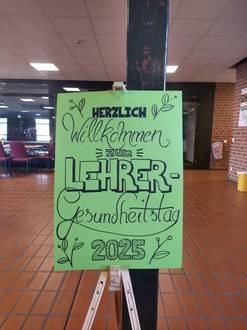 HERZLICH
Willkommen
ZUM
LEHRER-
Gesundheitstag
2025